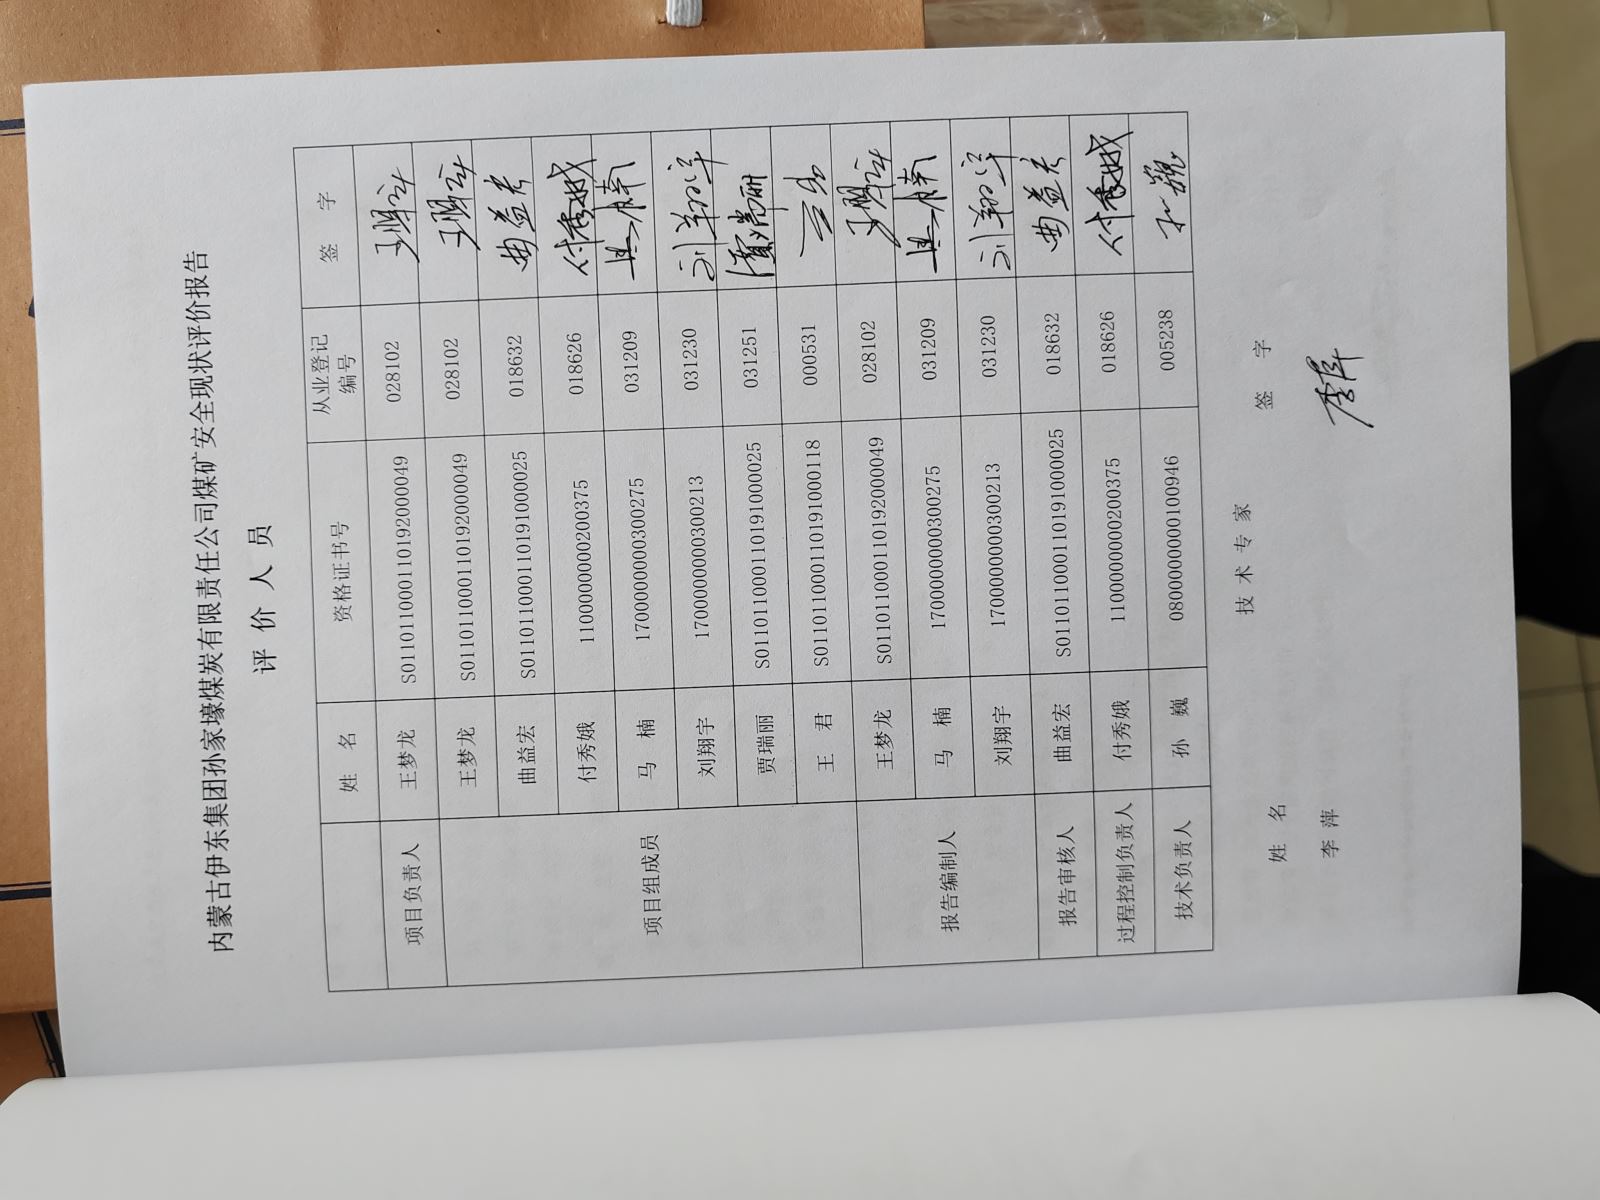 内蒙古伊东集团孙家壕煤炭有限责任公司煤矿安全现状评价报告
评 价 人 员
姓 名 资格证书号 从业登记编号 签 字
项目负责人 王梦龙 S011011000110192000049 028102 王梦龙
项目组成员 王梦龙 S011011000110192000049 028102 王梦龙
曲益宏 S011011000110191000025 018632 曲益宏
付秀娥 1100000000200375 018626 付秀娥
马 楠 1700000000300275 031209 马楠
刘翔宇 1700000000300213 031230 刘翔宇
贾瑞丽 S011011000110191000025 031251 贾瑞丽
王 君 S011011000110191000118 000531 王君
报告编制人 王梦龙 S011011000110192000049 028102 王梦龙
马 楠 1700000000300275 031209 马楠
刘翔宇 1700000000300213 031230 刘翔宇
报告审核人 曲益宏 S011011000110191000025 018632 曲益宏
过程控制负责人 付秀娥 1100000000200375 018626 付秀娥
技术负责人 孙 巍 0800000000100946 005238 孙巍
技 术 专 家
姓 名 签 字
李 萍 李萍